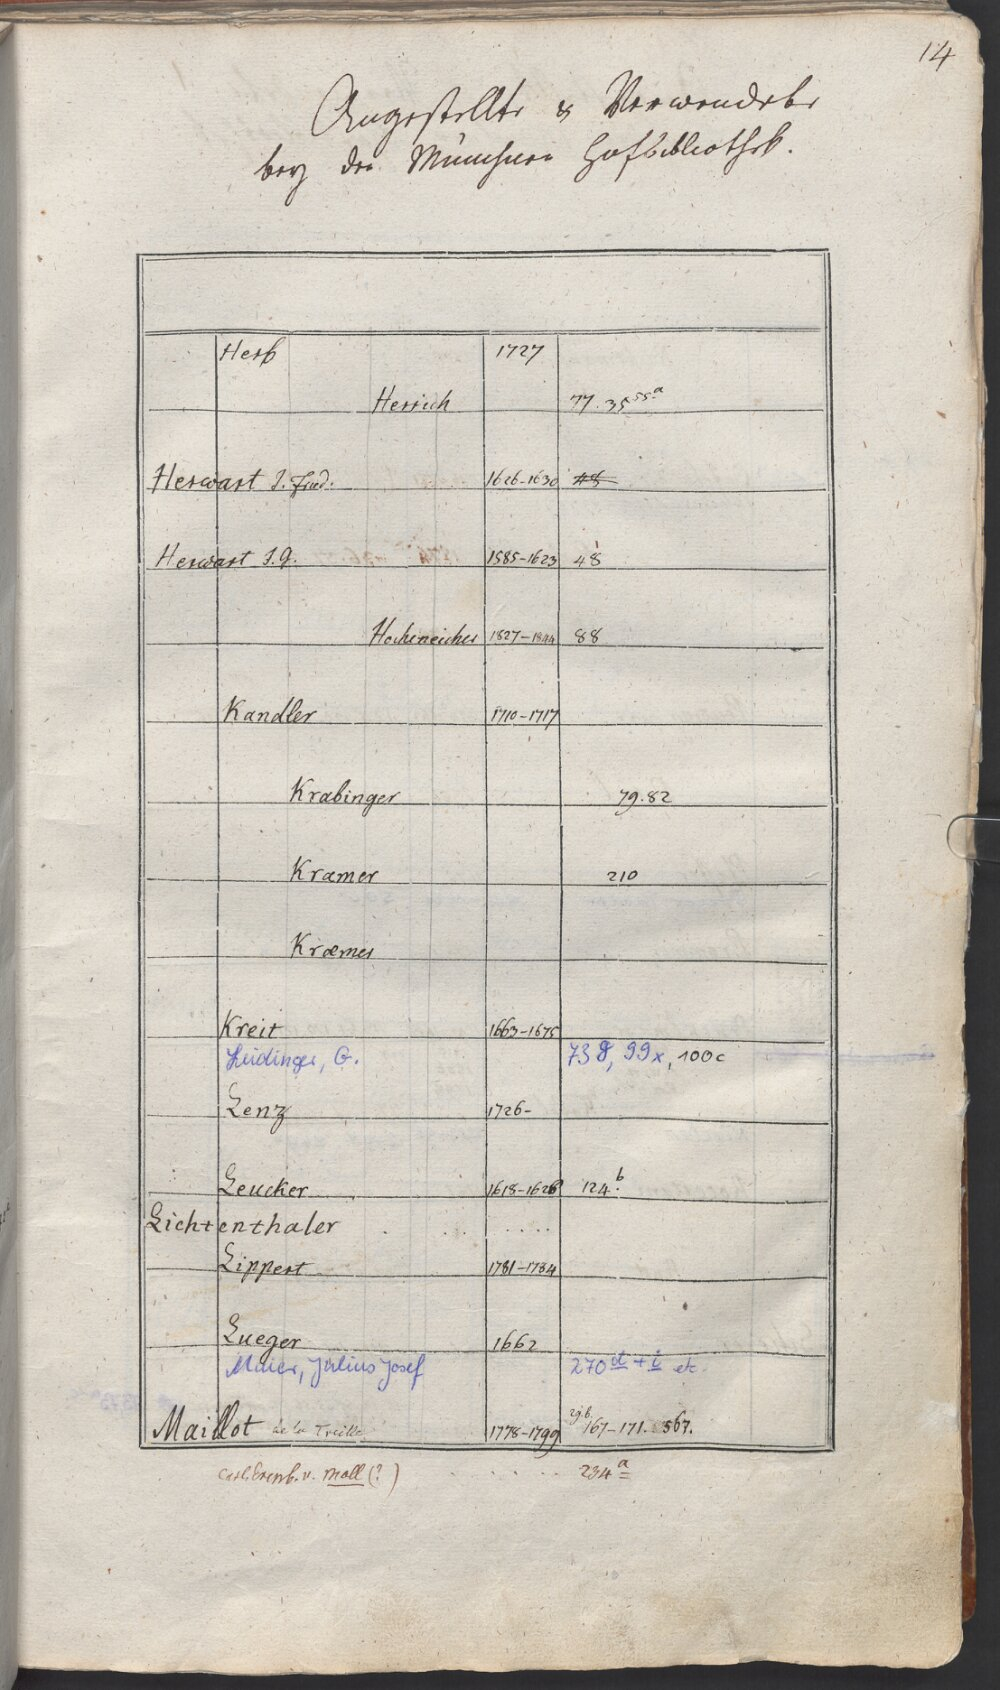 14
Angestellte & Verwendete
bey der Münchner Hofbibliothek.
Herb 1727
Herrich 77. 35 55.a
Herwart J. Frid. 1626-1630 48
Herwart J. G. 1585-1623 48
Hocheneicher 1827-1844 88
Kandler 1710-1717
Krabinger 79.82
Kramer 210
Kræmer
Kreit 1663-1675
Leidinger, G. 73 , 99x, 100c
Lenz 1726-
Leucker 1618-1628 124.b
Lichtenthaler
Lippert 1781-1784
Lueger 1662
Maier, Julius Josef 270 d + i etc.
Maillot de la Treille 1778-1799 167-171. 567.
v. Moll (?) 234 a